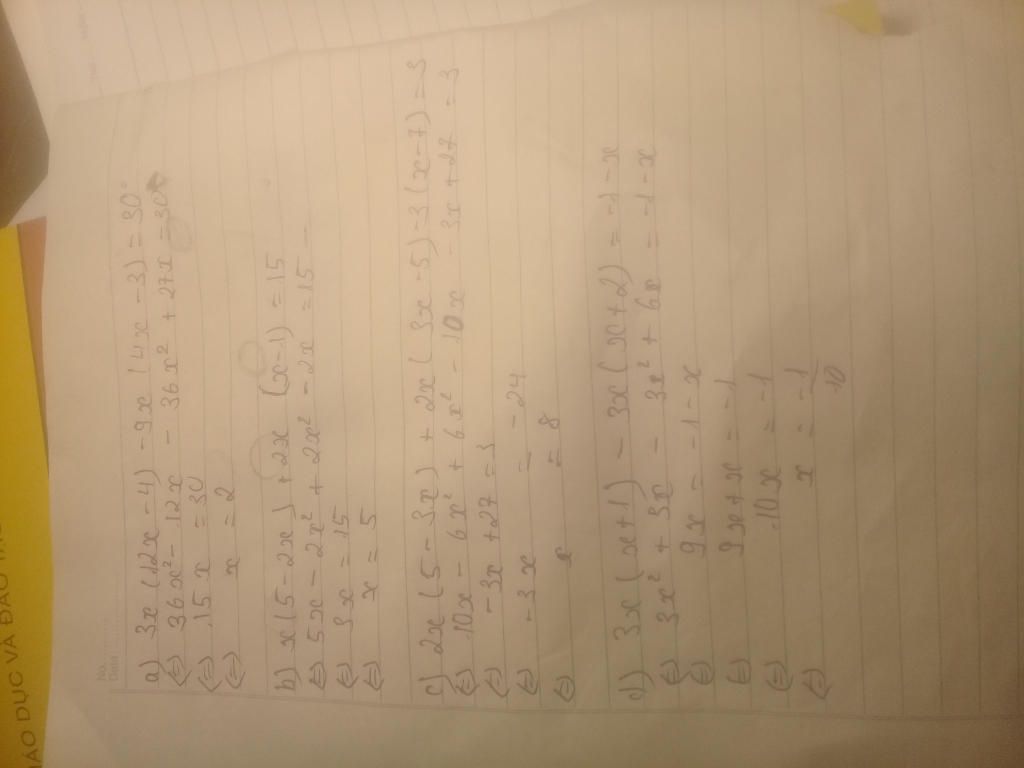 No.
Date
a) 3x(12x - 4) - 9x(4x - 3) = 30
(=) 36x² - 12x - 36x² + 27x = 30
(=) 15x = 30
(=) x = 2
b) x(5 - 2x) + 2x (x - 1) = 15
(=) 5x - 2x² + 2x² - 2x = 15
(=) 3x = 15
(=) x = 5
c) 2x(5 - 3x) + 2x(3x - 5) - 3(x - 7) = 3
(=) 10x - 6x² + 6x² - 10x - 3x + 27 = 3
(=) -3x + 27 = 3
(=) -3x = -24
(=) x = 8
d) 3x(x + 1) - 3x(x + 2) = -1 - x
(=) 3x² + 3x - 3x² + 6x = -1 - x
(=) 9x = -1 - x
(=) 9x + x = -1
(=) 10x = -1
(=) x = -1/10
DỤC VÀ ĐÀO